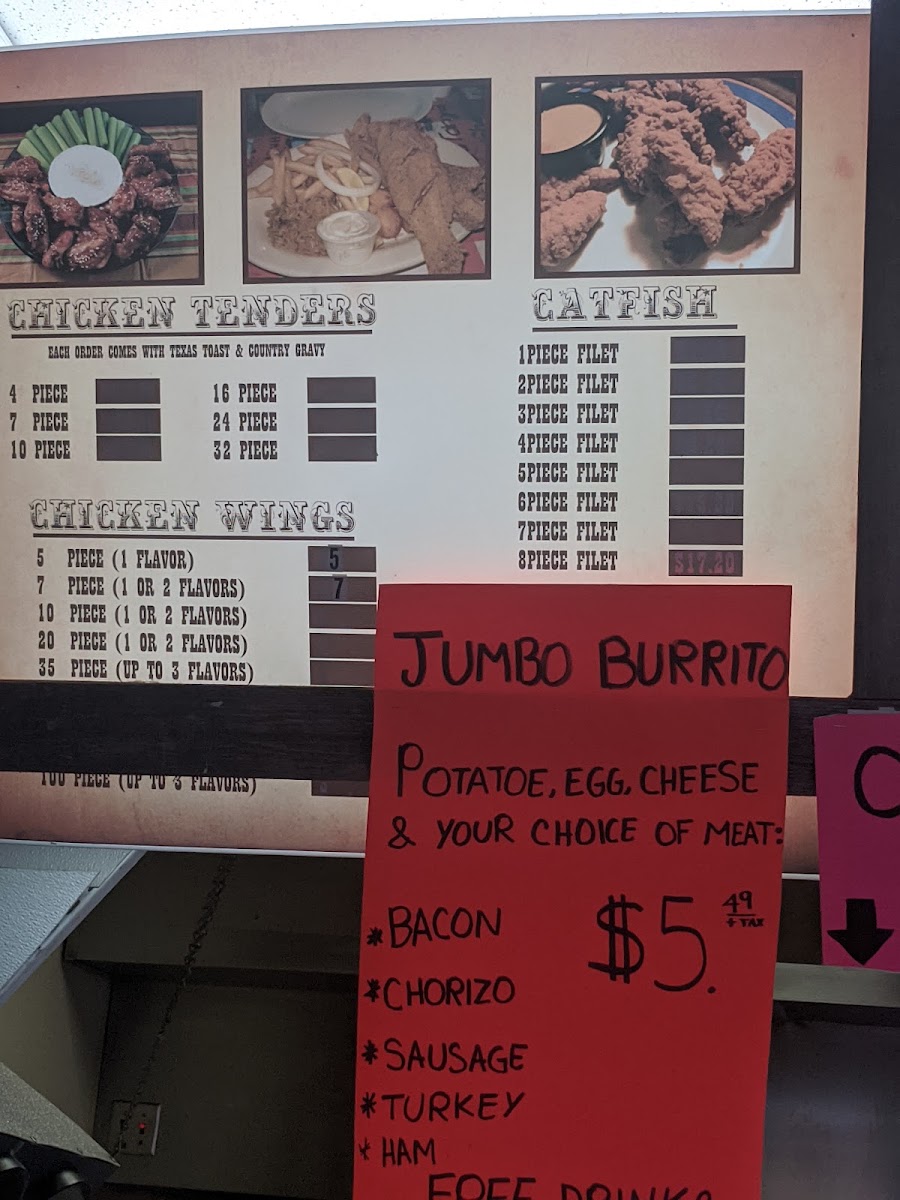 CHICKEN TENDERS
EACH ORDER COMES WITH TEXAS TOAST & COUNTRY GRAVY
4 PIECE
7 PIECE
10 PIECE
16 PIECE
24 PIECE
32 PIECE
CHICKEN WINGS
5 PIECE (1 FLAVOR) 5
7 PIECE (1 OR 2 FLAVORS) 7
10 PIECE (1 OR 2 FLAVORS)
20 PIECE (1 OR 2 FLAVORS)
35 PIECE (UP TO 3 FLAVORS)
100 PIECE (UP TO 3 FLAVORS)
CATFISH
1PIECE FILET
2PIECE FILET
3PIECE FILET
4PIECE FILET
5PIECE FILET
6PIECE FILET
7PIECE FILET
8PIECE FILET $17.20
JUMBO BURRITO
POTATOE, EGG, CHEESE
& YOUR CHOICE OF MEAT:
*BACON
*CHORIZO
*SAUSAGE
*TURKEY
*HAM
$5.49
+ TAX
FREE DRINK